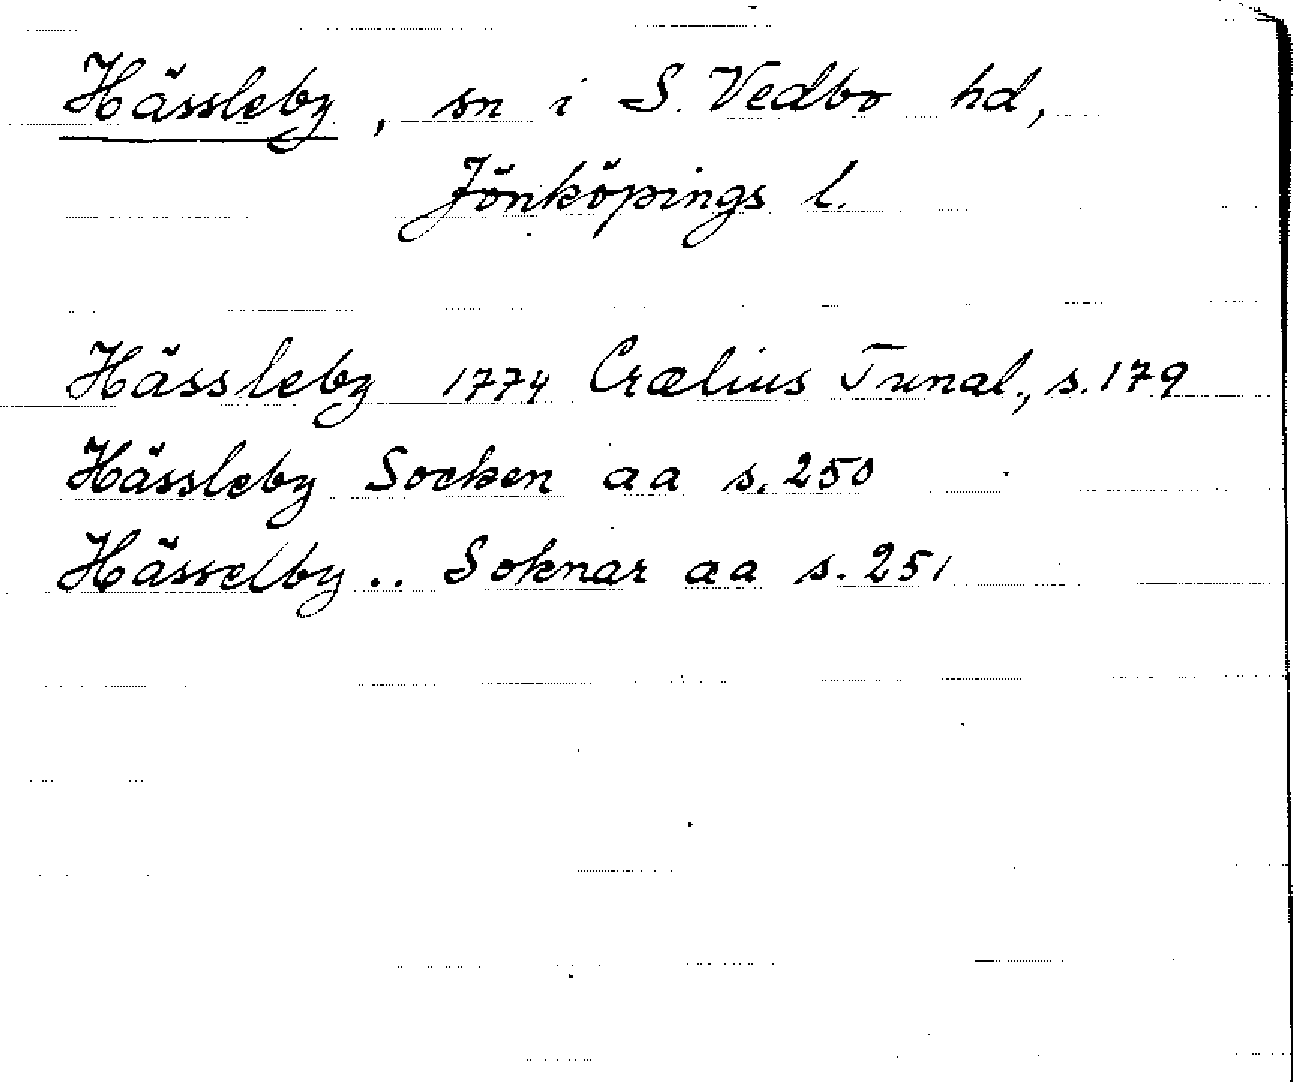 Hässleby, sn i S. Vedbo hd,
Jönköpings l.
Hässleby 1774 Crælius Tunal., s. 179
Hässleby Socken aa s. 250
Hässelby .. Soknar aa s. 251